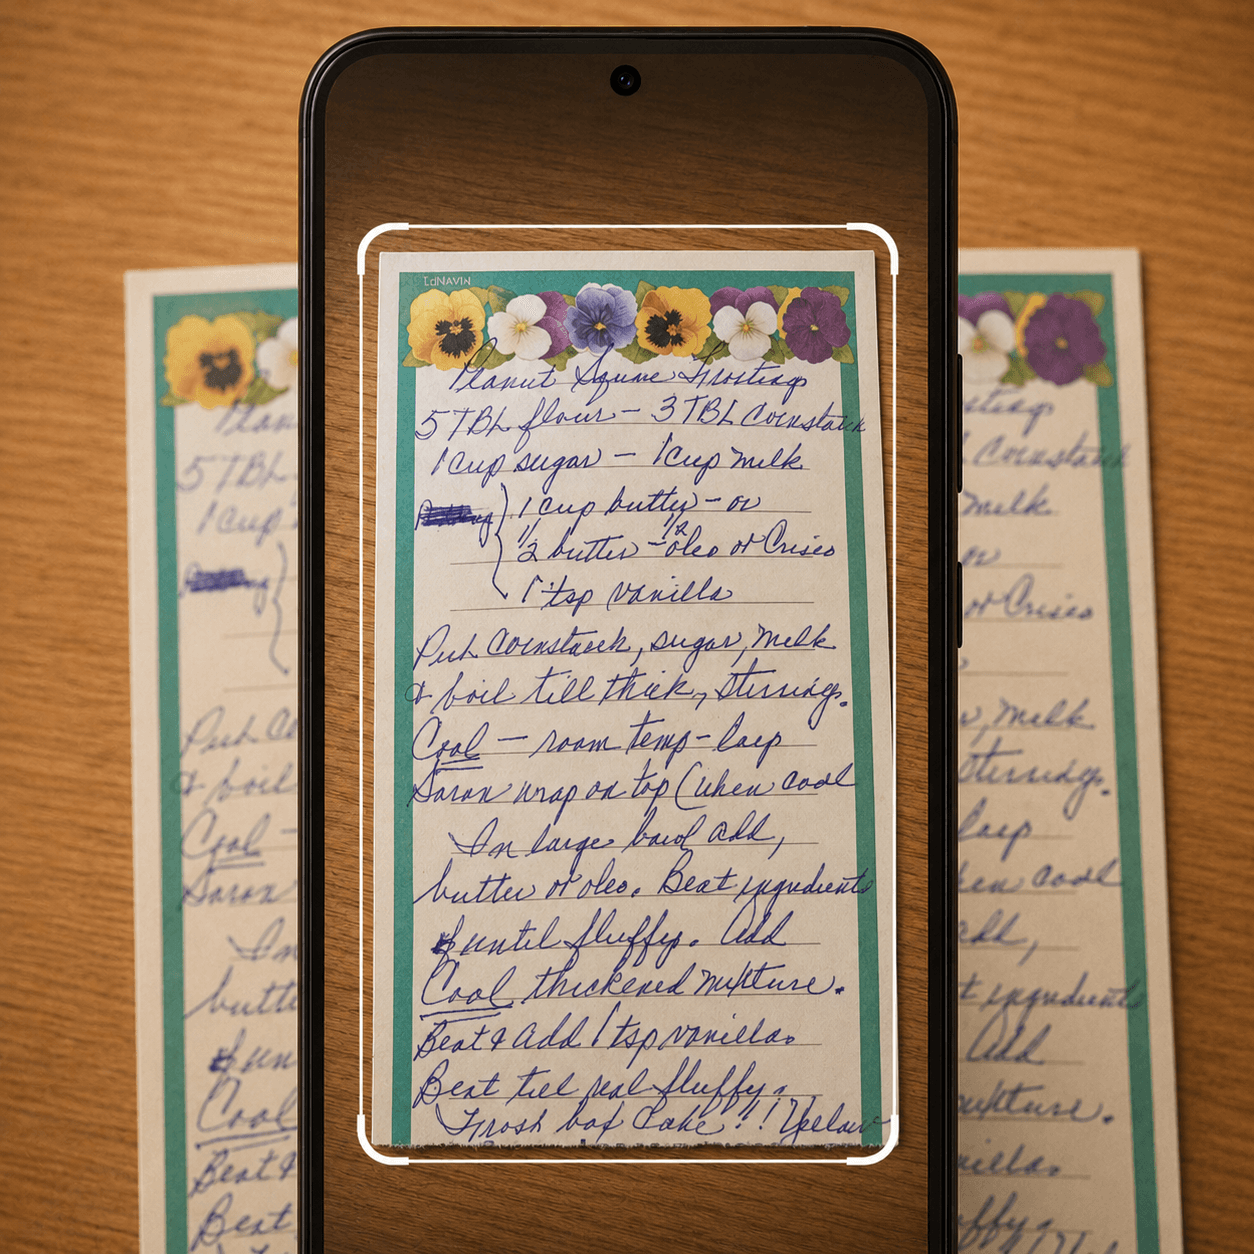 LaNAVIN
Peanut Square Frosting
5 TBL flour – 3 TBL Cornstarch
1 Cup sugar – 1 Cup Milk
1 Cup butter – or
1/2 butter – 1/2 oleo or Crisco
1 tsp vanilla
Put Cornstarch, sugar, Milk
& boil till thick, stirring.
Cool – room temp – lay
Saran wrap on top (when cool
In large bowl add,
butter or oleo. Beat ingredients
until fluffy. Add
Cool thickened mixture.
Beat & Add 1 tsp vanilla.
Beat till real fluffy.
Frost box Cake!! Yellow